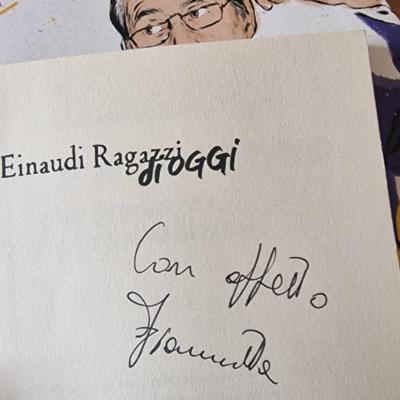 Einaudi Ragazzi
di OGGI
Con affetto
Fiammetta